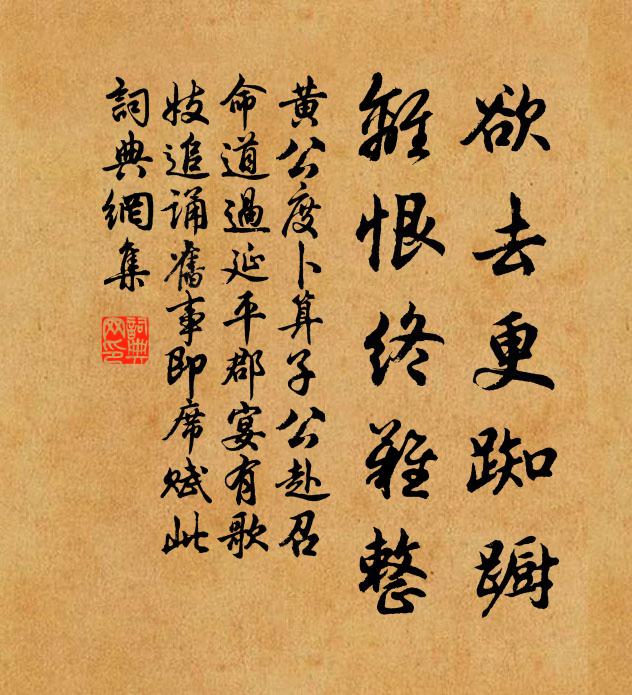 欲去更踟蹰
離恨終難整
黄公度卜算子公赴召
命道過延平郡宴有歌
妓追诵舊事即席赋此
詞典網集
詞典網印